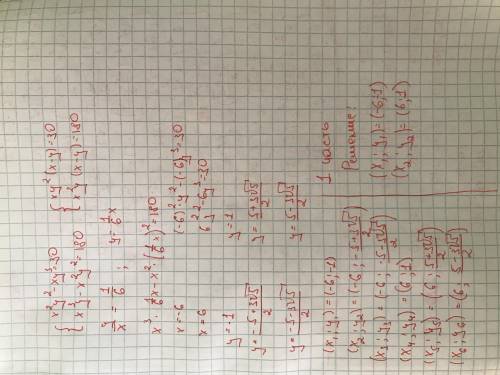 { x²y²-xy³=30
{ x³y-x²y²=180
{ xy²(x-y)=30
{ x²y(x-y)=180
y/x = 1/6 ; y = 1/6 x
x³ · 1/6 x - x² · (1/6 x)² = 180
x=-6
x=6
(-6)²·y²-(-6)y³=30
6²y²-6y³=30
y=-1
y= -5+3√5/2
y= -5-3√5/2
y=1
y= 5+3√5/2
y= 5-3√5/2
(x₁; y₁)=(-6;-1)
(x₂; y₂)=(-6; -5+3√5/2)
(x₃; y₃)=(-6; -5-3√5/2)
(x₄; y₄)=(6;1)
(x₅; y₅)=(6; 5+3√5/2)
(x₆; y₆)=(6, 5-3√5/2)
1 часть
Решение:
(x₁, y₁)=(-6;-1)
(x₂, y₂)=(6;1)